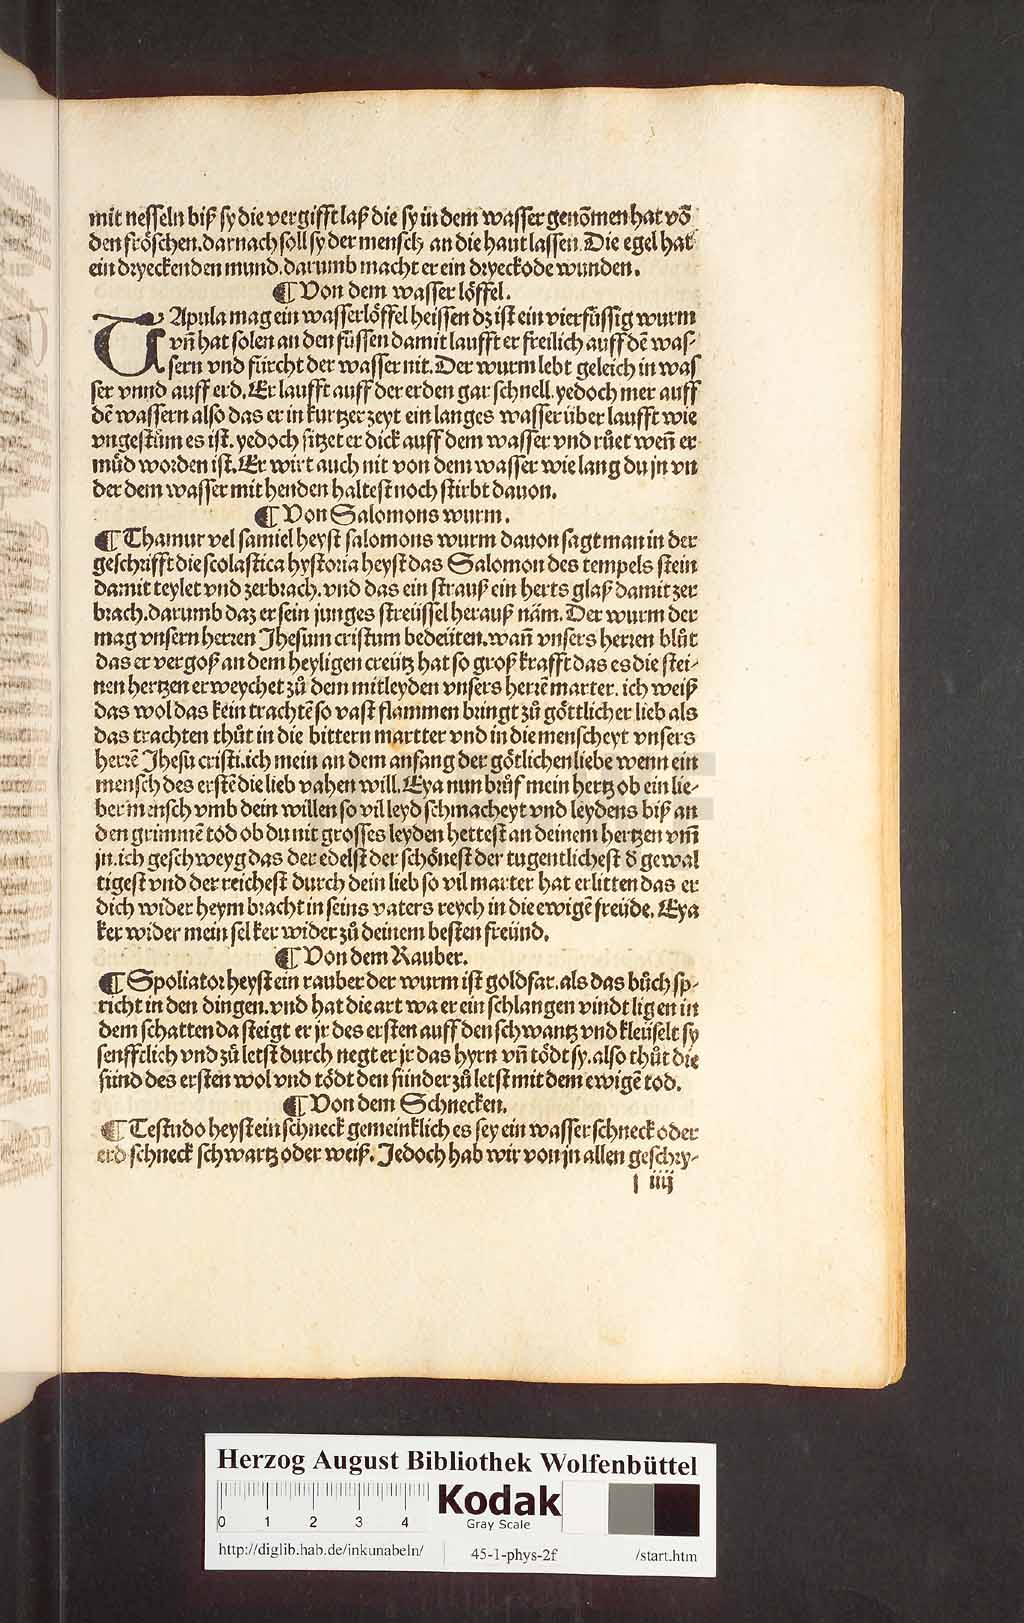 mit nesseln biß sy die vergifft laß die sy in dem wasser genōmen hat vō
den fröschen. darnach soll sy der mensch an die haut lassen. Die egel hat
ein dryeckenden mund. darumb macht er ein dryeckode wunden.
¶ Von dem wasser löffel.
TApula mag ein wasserlöffel heissen dz ist ein vierfüssig wurm
vn̄ hat solen an den füssen damit laufft er freilich auff dē was-
sern vnd fürcht der wasser nit. Der wurm lebt geleich in was
ser vnnd auff erd. Er laufft auff der erden gar schnell. yedoch mer auff
dē wassern also das er in kurtzer zeyt ein langes wasser über laufft wie
vngestům es ist. yedoch sitzet er dick auff dem wasser vnd růet wen̄ er
můd worden ist. Er wirt auch nit von dem wasser wie lang du jn vn
der dem wasser mit henden haltest noch stirbt dauon.
¶ Von Salomons wurm.
¶ Thamur vel samiel heyst salomons wurm dauon sagt man in der
geschrifft die scolastica hystoria heyst das Salomon des tempels stein
damit teylet vnd zerbrach. vnd das ein strauß ein herts glaß damit zer
brach. darumb daz er sein junges streüssel herauß näm. Der wurm der
mag vnsern herren Jhesum cristum bedeüten. wan̄ vnsers herren blůt
das er vergoß an dem heyligen creütz hat so groß krafft das es die stei-
nen hertzen erweychet zů dem mitleyden vnsers herrē marter. ich weiß
das wol das kein trachtē so vast flammen bringt zů göttlicher lieb als
das trachten thůt in die bittern martter vnd in die menscheyt vnsers
herrē Jhesu cristi. ich mein an dem anfang der götlichen liebe wenn ein
mensch des erstē die lieb vahen will. Eya nun brůf mein hertz ob ein lie-
ber mensch vmb dein willen so vil leyd schmacheyt vnd leydens biß an
den grimmē tod ob du nit grosses leyden hettest an deinem hertzen vm̄
jn. ich geschweyg das der edelst der schönest der tugentlichest d̓ gewal
tigest vnd der reichest durch dein lieb so vil marter hat erlitten das er
dich wider heym bracht in seins vaters reych in die ewigē freüde. Eya
ker wider mein sel ker wider zů deinem besten freünd.
¶ Von dem Rauber.
¶ Spoliator heyst ein rauber der wurm ist goldfar. als das bůch sp-
richt in den dingen. vnd hat die art wa er ein schlangen vindt ligen in
dem schatten da steigt er jr des ersten auff den schwantz vnd kleüselt sy
senfftlich vnd zů letst durch negt er jr das hyrn vn̄ tödt sy. also thůt die
sünd des ersten wol vnd tödt den sünder zů letst mit dem ewigē tod.
¶ Von dem Schnecken.
¶ Testudo heyst ein schneck gemeinklich es sey ein wasser schneck oder
erd schneck schwartz oder weiß. Jedoch hab wir von jn allen geschry-
l iiij
Herzog August Bibliothek Wolfenbüttel
0 1 2 3 4
Kodak
Gray Scale
http://diglib.hab.de/inkunabeln/ 45-1-phys-2f /start.htm